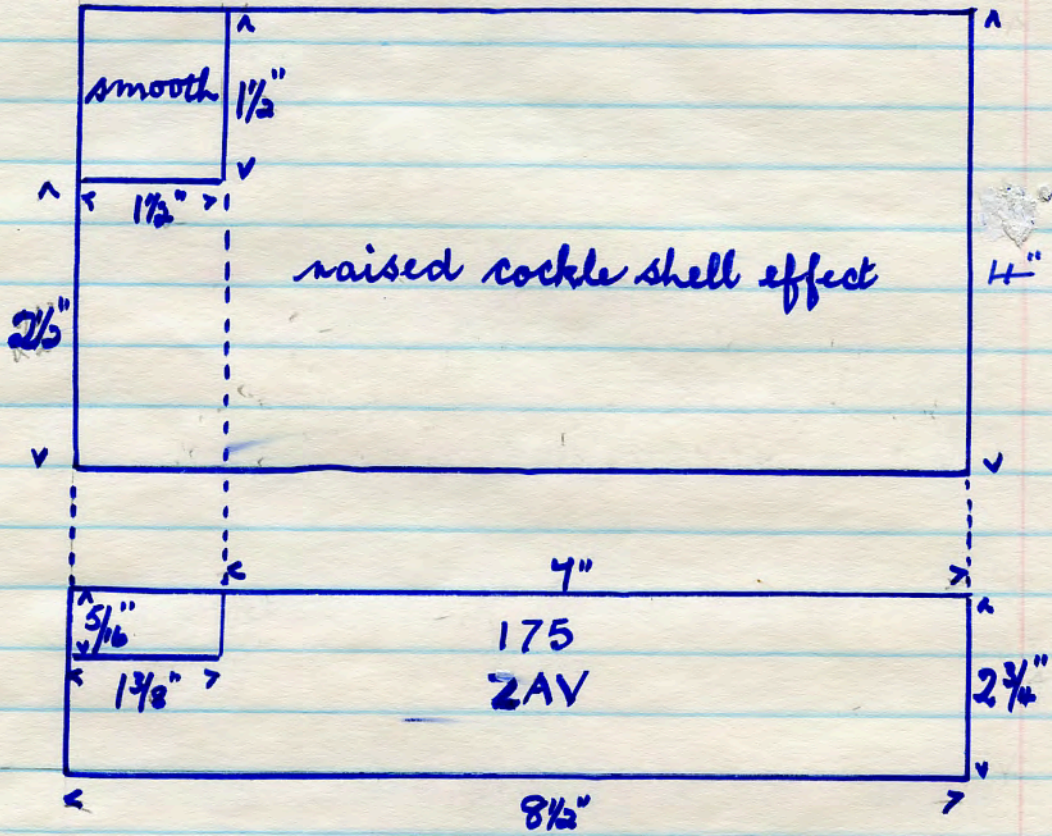 smooth
1½"
1½"
raised cockle shell effect
4"
2½"
7"
5/16"
175
1⅜"
ZAV
2¾"
8½"